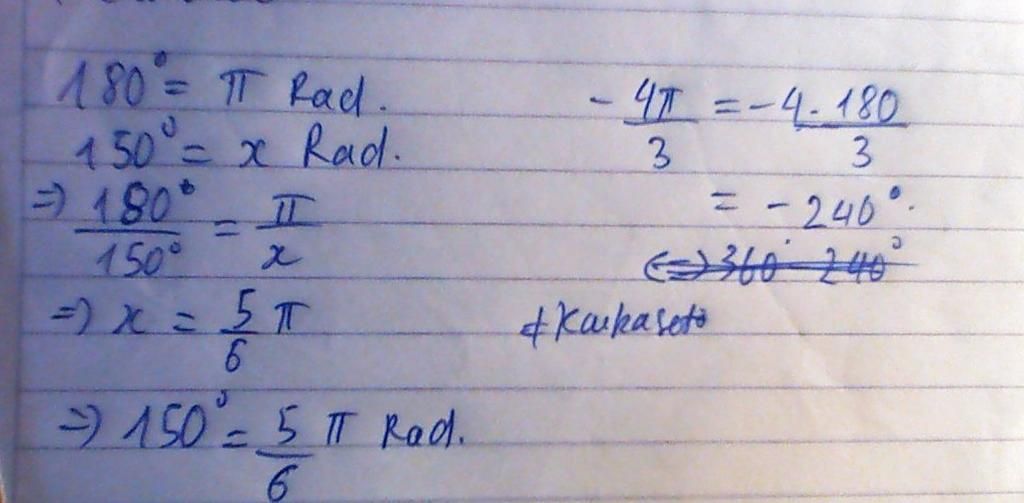 180° = π Rad.
150° = x Rad.
⇒ 180°/150° = π/x
⇒ x = 5/6 π
⇒ 150° = 5/6 π Rad.
- 4π/3 = -4.180/3
= -240°.
⇔ 360° - 240°